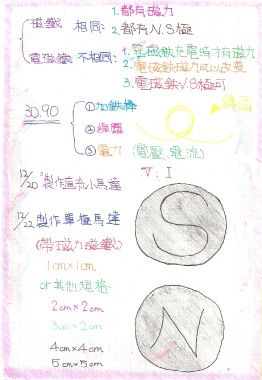 磁鐵 相同:
1. 都有磁力
2. 都有N.S極
電磁鐵 不相同:
1. 電磁鐵充電時才有磁力
2. 電磁鐵磁力可以改變
3. 電磁鐵N.S極可
30.90
①加鐵棒
②線圈
③電力 (電壓,電流)
線圈
V : I
12/20 製作直流小馬達
12/22 製作單極馬達
(帶磁力磁鐵)
1cm×1cm
or其他規格
2cm×2cm
3cm×2cm
4cm×4cm
5cm×5cm
S
N